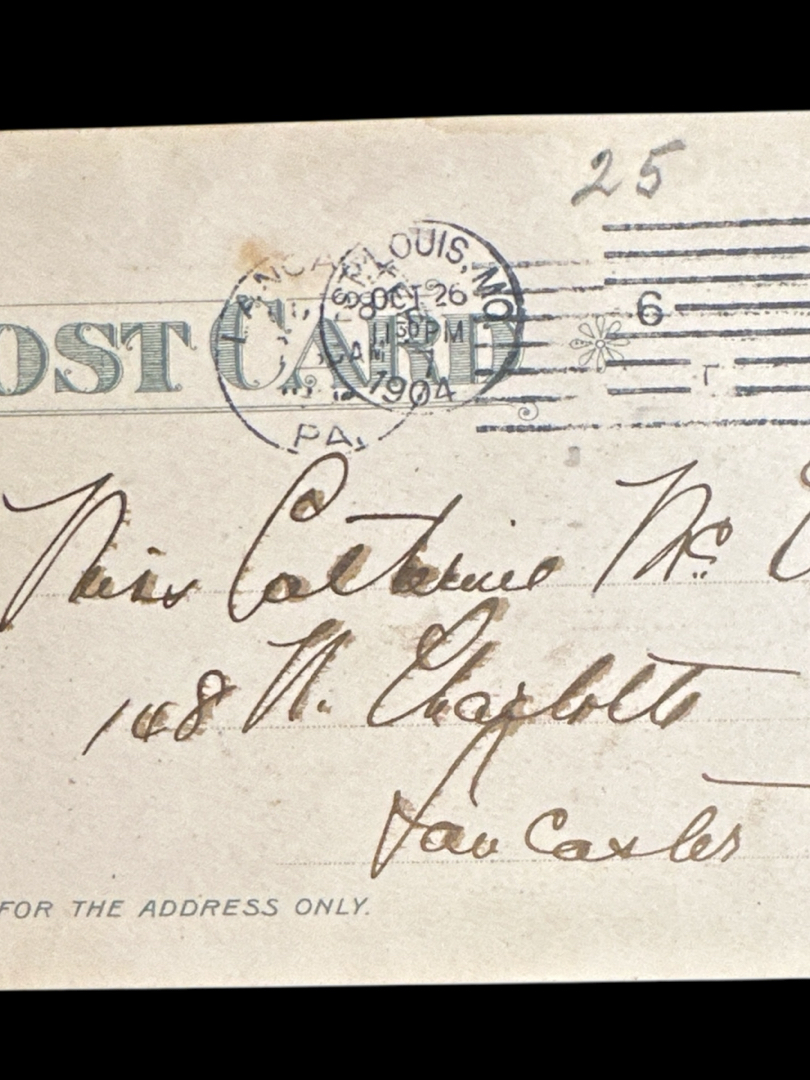 25
OST CARD
LANCA
PA.
ST. LOUIS, MO
OCT 26
1130 PM
1904
6
Miss Catherine Mc
148 N. Charlotte
Lancaster
FOR THE ADDRESS ONLY.